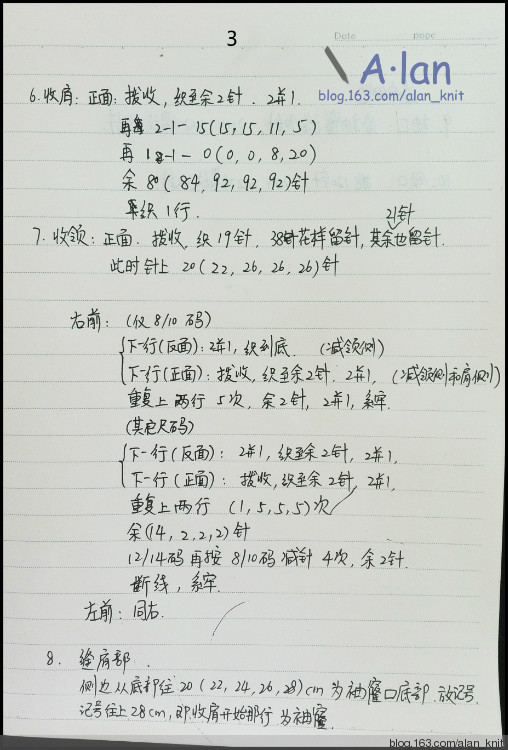 3
Date
page
A·lan
blog.163.com/alan_knit
6.收肩:正面:拨收,织至余2针.2并1.
再每 2-1-15(15,15,11,5)
再 1-1-0(0,0,8,20)
余80(84,92,92,92)针
织1行.
21针
7.收领:正面.拨收,织19针,38针花样留针,其余也留针.
此时针上 20(22,26,26,26)针
右前:(仅8/10码)
下一行(反面):2并1,织到底.(减领侧)
下一行(正面):拨收,织至余2针.2并1,(减领侧和肩侧)
重复上两行5次,余2针,2并1,系牢.
(其它尺码)
下一行(反面):2并1,织至余2针,2并1.
下一行(正面):拨收,织至余2针,2并1.
重复上两行(1,5,5,5)次
余(14,2,2,2)针
12/14码再按8/10码减针4次,余2针.
断线,系牢.
左前:同右.
8. 缝肩部.
侧边从底部往20(22,24,26,28)cm为袖窿口底部.放记号.
记号往上28cm,即收肩开始那行为袖窿.
blog.163.com/alan_knit